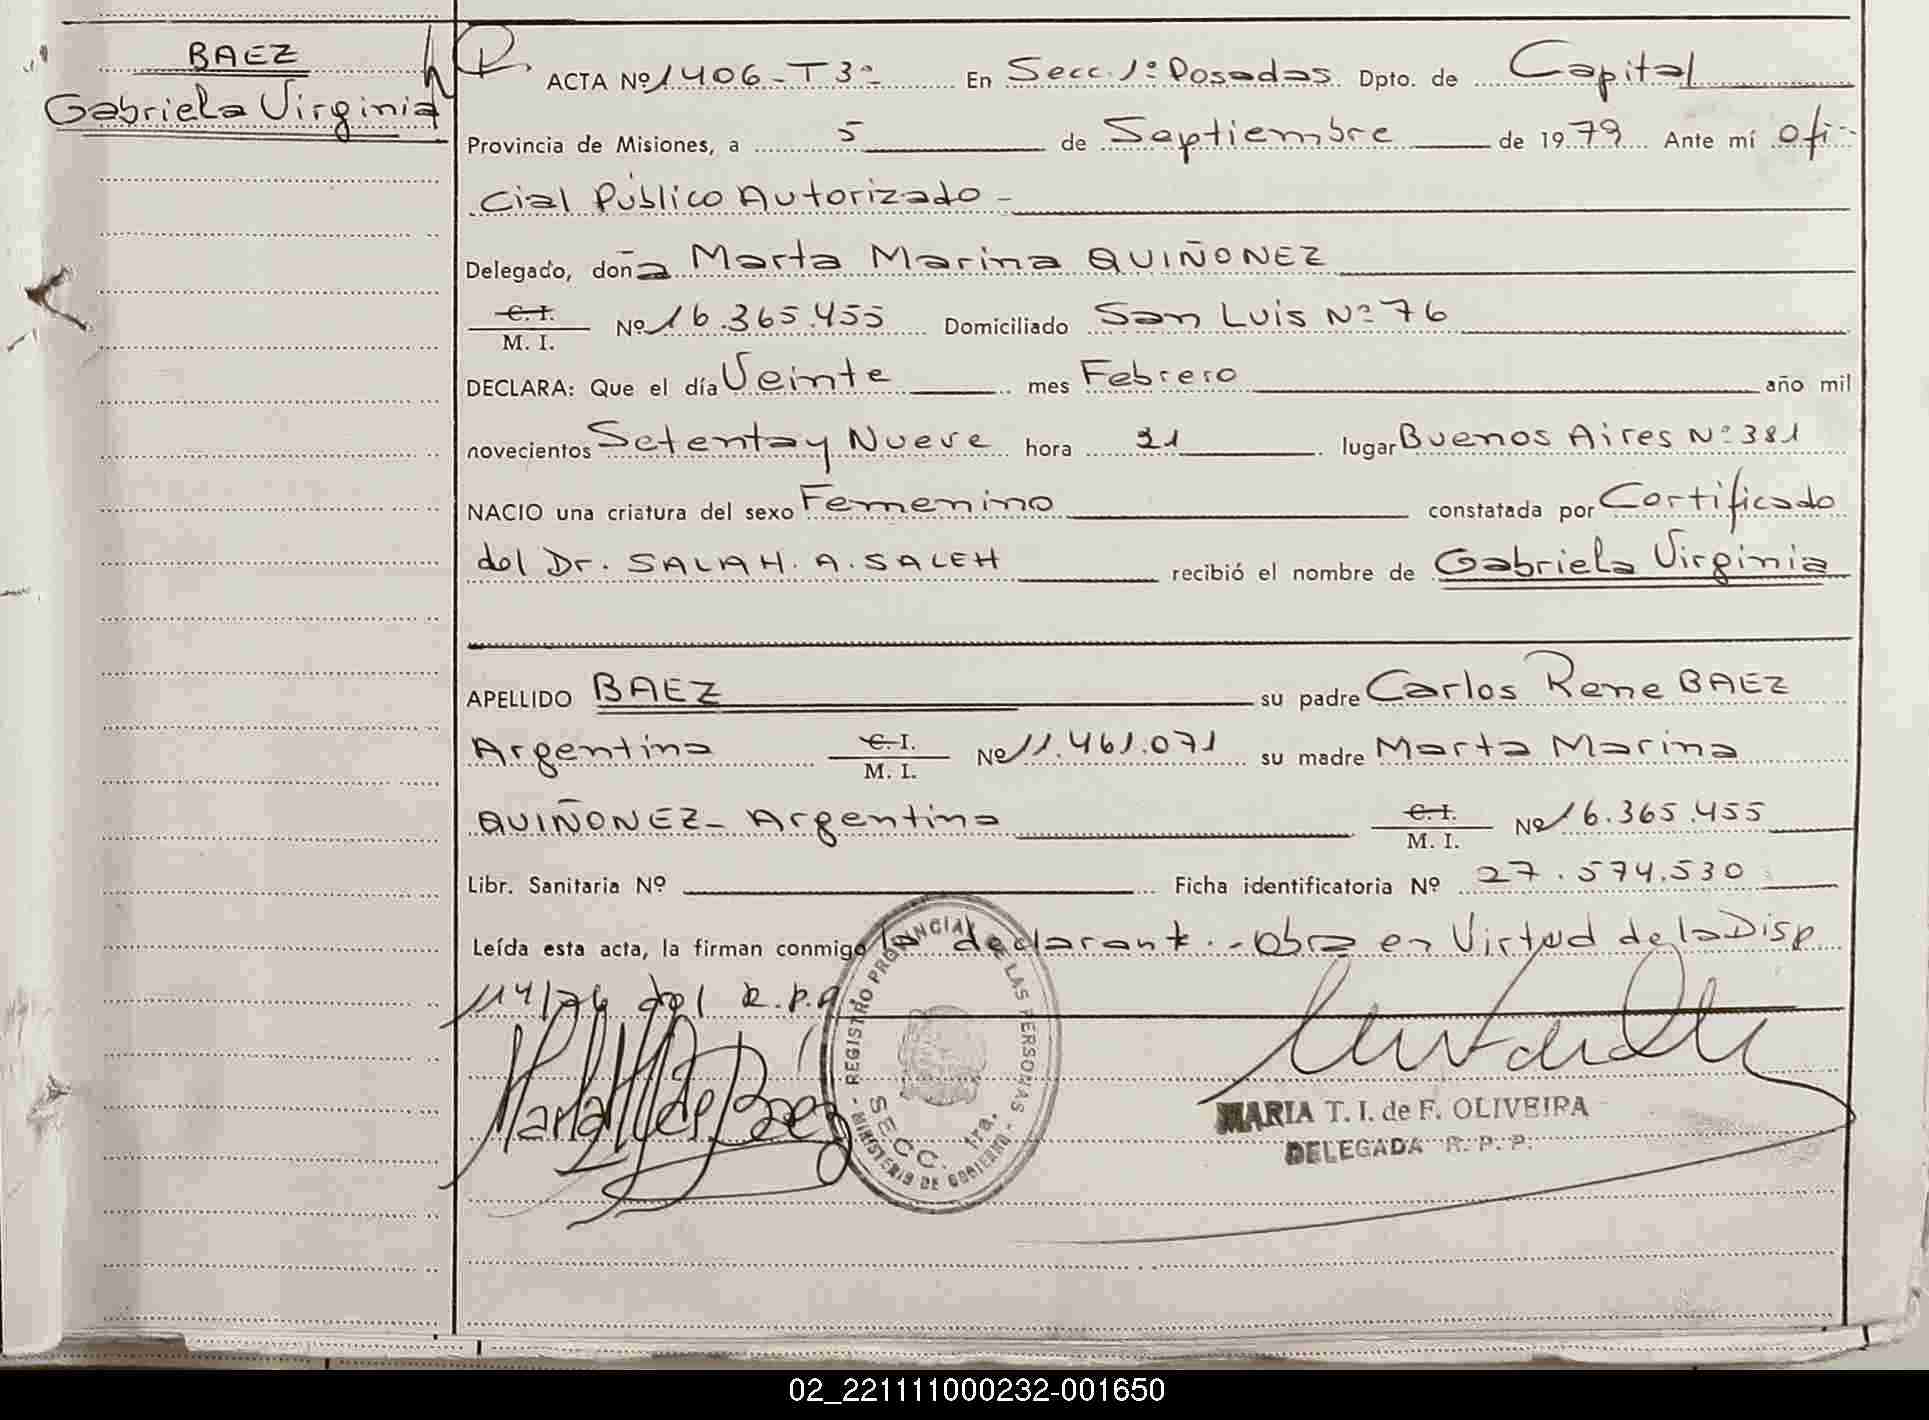 BAEZ
Gabriela Virginia
ACTA Nº 1406-T3º En Secc. 1º Posadas Dpto. de Capital
Provincia de Misiones, a 5 de Septiembre de 1979 Ante mí Ofi-
cial Público Autorizado -
Delegado, doña Marta Marina QUIÑONEZ
C. I.
M. I. Nº 16.365.455 Domiciliado San Luis Nº 76
DECLARA: Que el día Veinte mes Febrero año mil
novecientos Setenta y Nueve hora 21 lugar Buenos Aires Nº 381
NACIO una criatura del sexo Femenino constatada por Certificado
del Dr. SALAH. A. SALEH recibió el nombre de Gabriela Virginia
APELLIDO BAEZ su padre Carlos Rene BAEZ
Argentino C. I.
M. I. Nº 11.461.071 su madre Marta Marina
QUIÑONEZ - Argentina C. I.
M. I. Nº 16.365.455
Libr. Sanitaria Nº Ficha identificatoria Nº 27.574.530
Leída esta acta, la firman conmigo la declarante.- obra en Virtud de la Disp
114/76 del R.P.P.
REGISTRO PROVINCIAL DE LAS PERSONAS
SECC. 1ra.
MINISTERIO DE GOBIERNO
MARIA T. I. de F. OLIVEIRA
DELEGADA R. P. P.
02_221111000232-001650